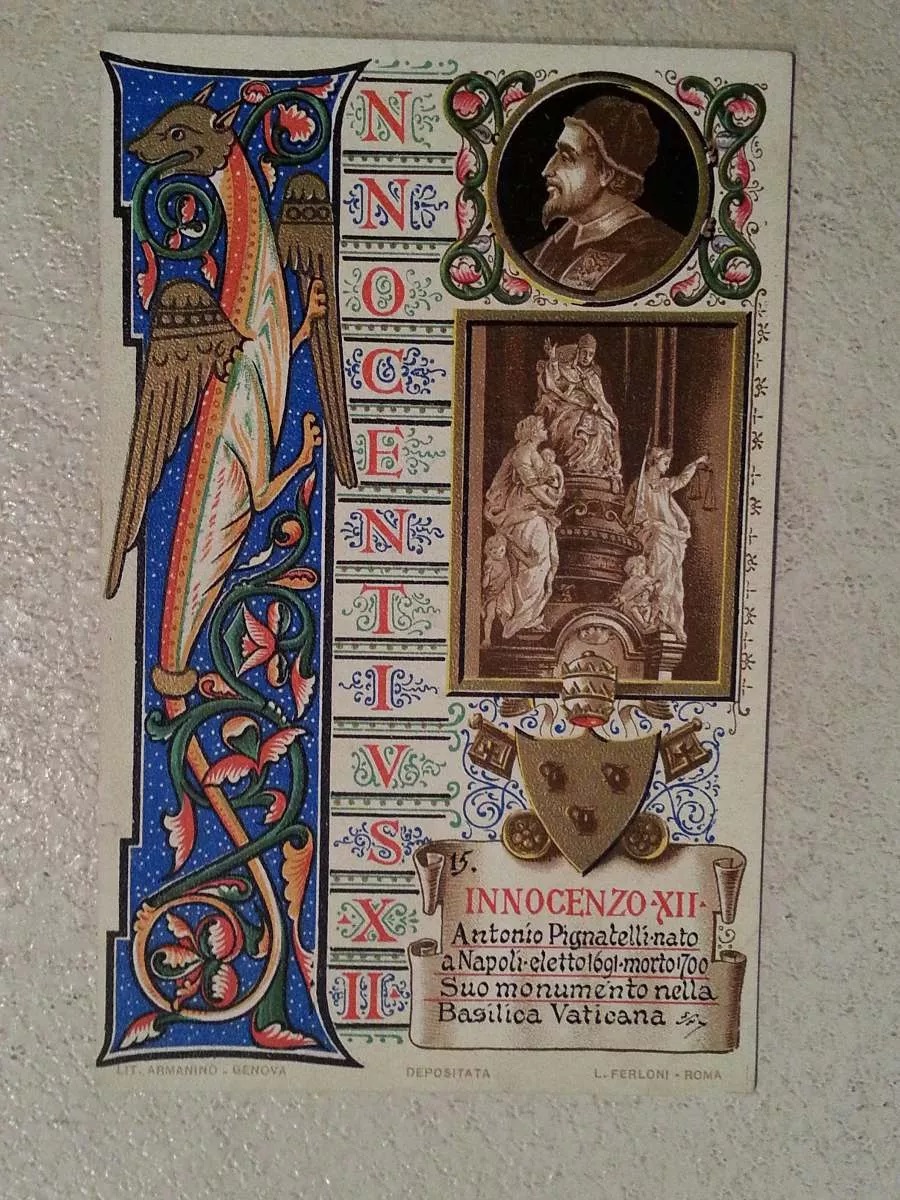 INNOCENTIVS XII
15.
INNOCENZO·XII·
Antonio Pignatelli·nato
a Napoli·eletto 1691·morto 1700
Suo monumento nella
Basilica Vaticana
LIT. ARMANINO - GENOVA
DEPOSITATA
L. FERLONI - ROMA